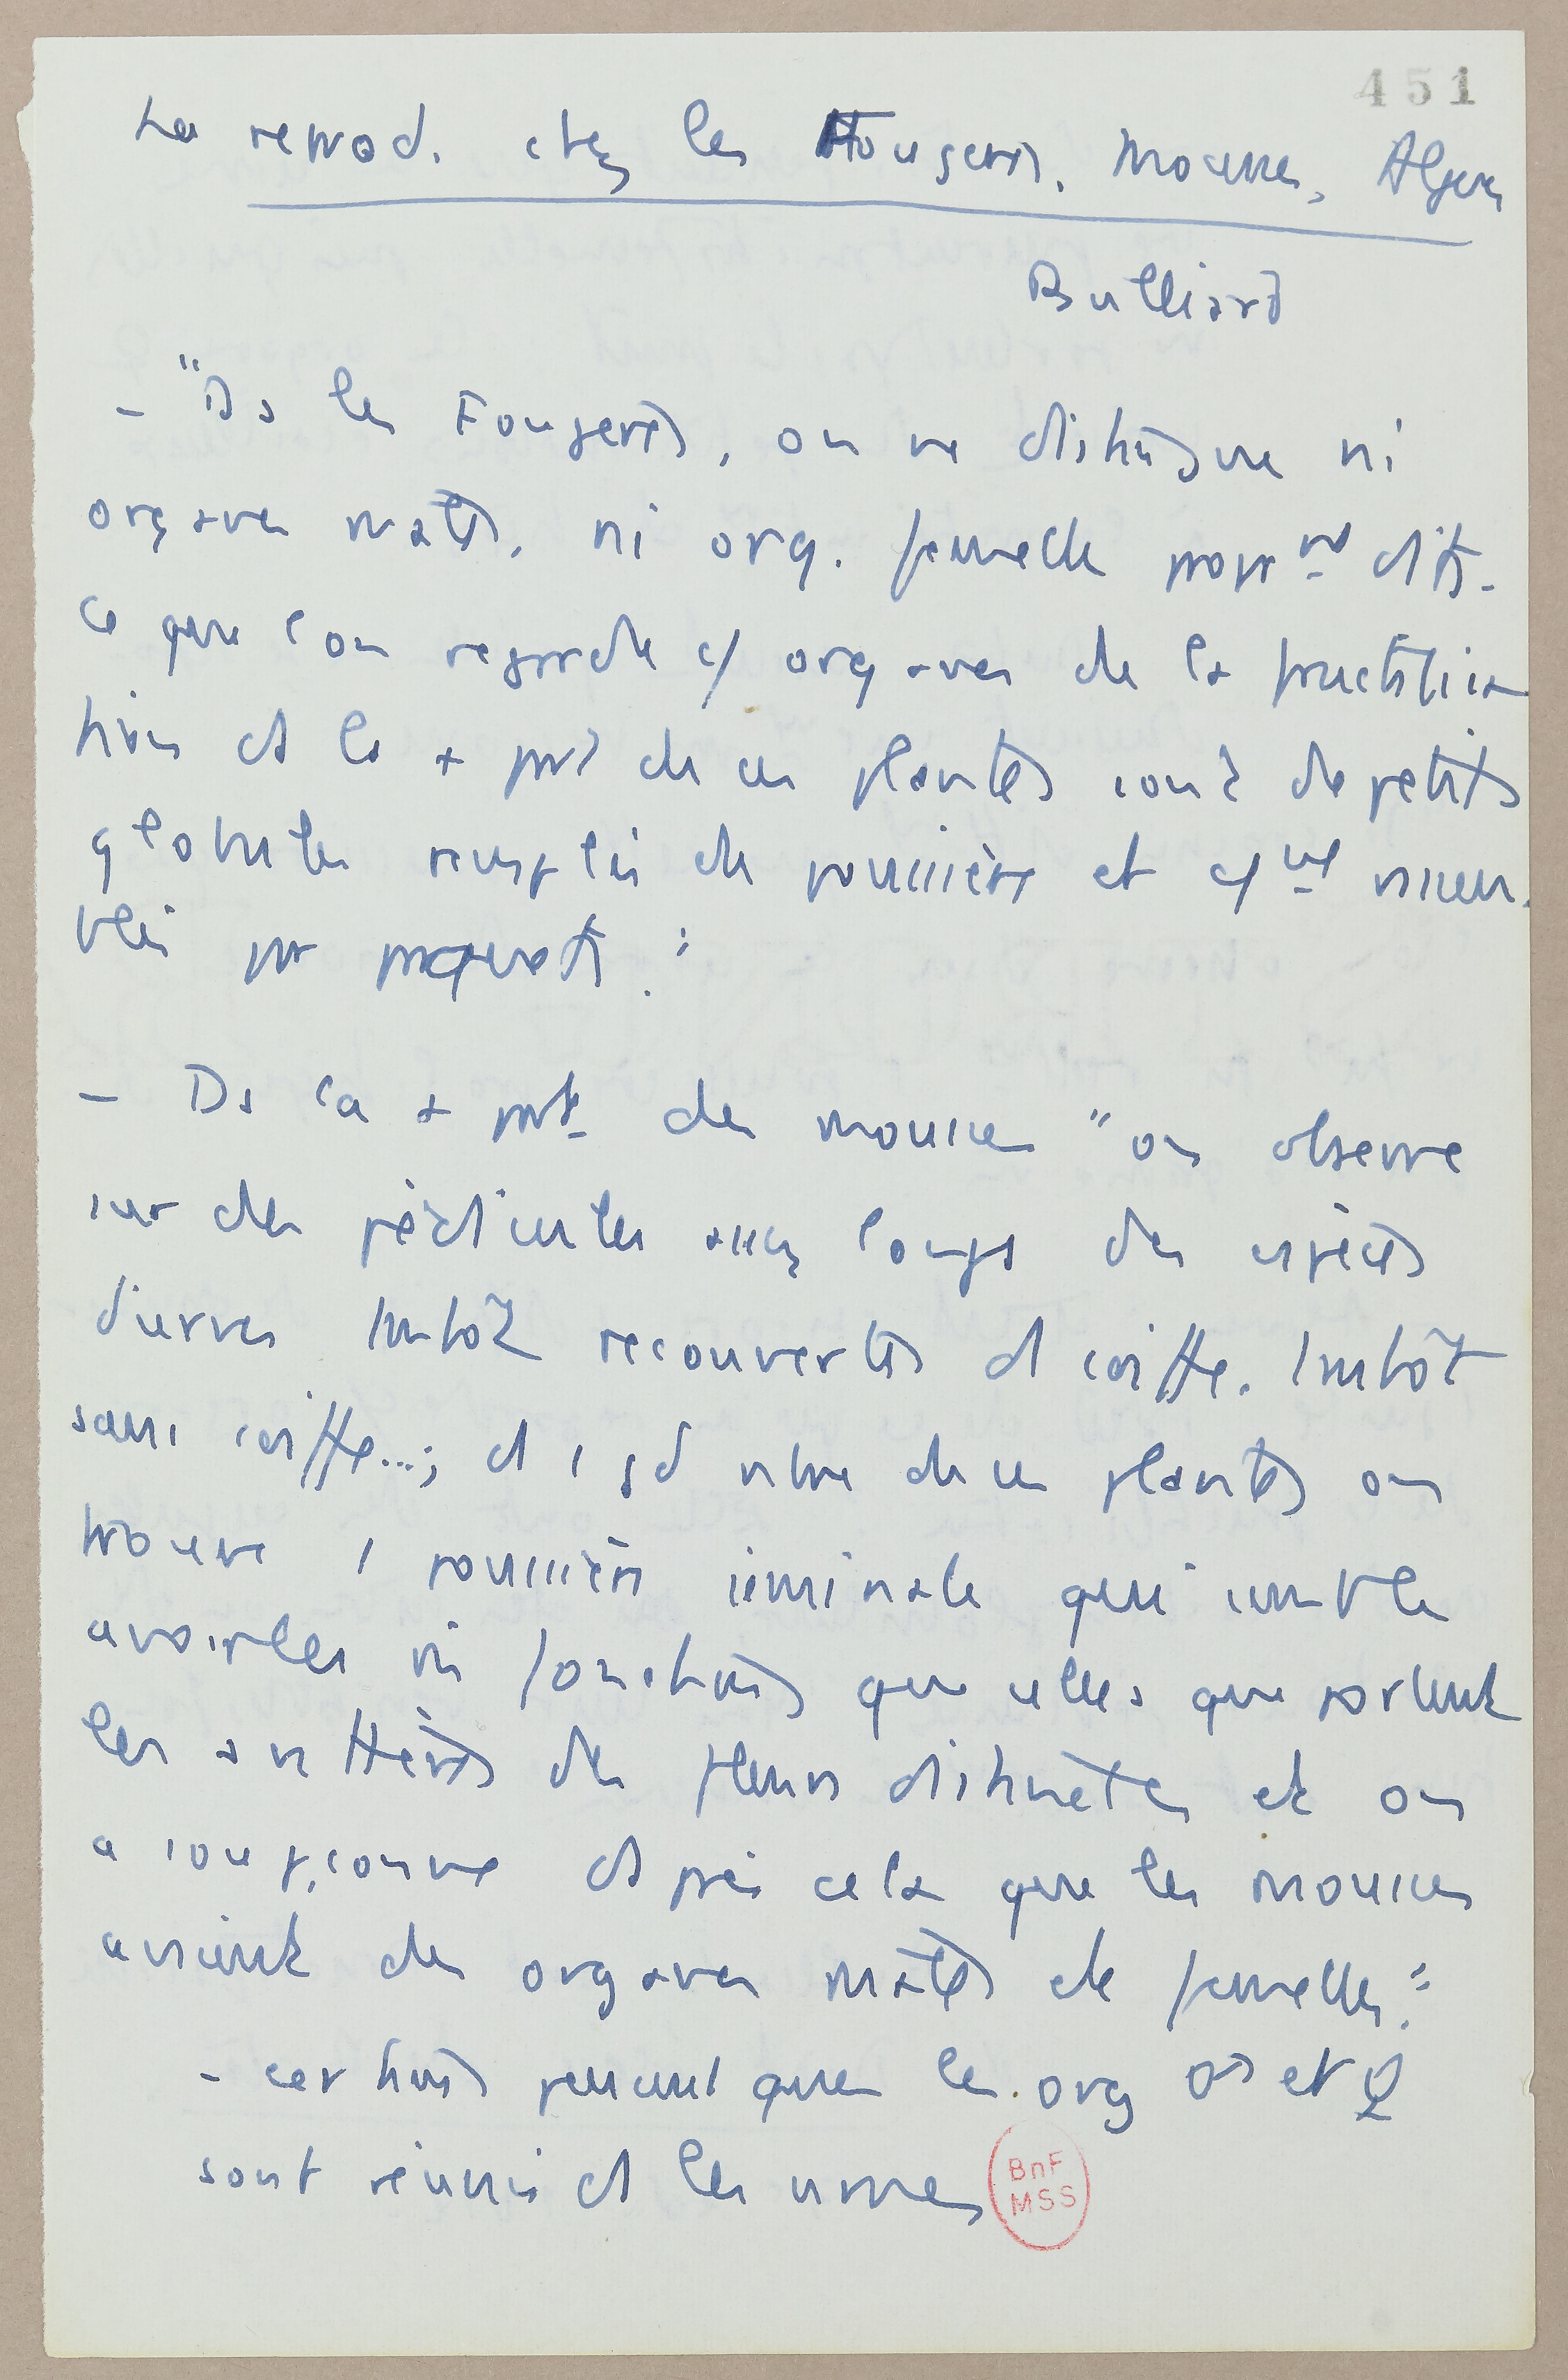 451
La reprod. chez les Fougères, Mousses, Algues
Bulliard
- "Ds les Fougères, on ne distingue ni
organes mâles, ni org. femelle propr<sup>nt</sup> dits.
Ce que l'on regarde c/ organes de la fructifica
tion ds la + part de ces plantes sont de petits
globules remplis de poussière et c/<sup>nt</sup> rassem-
blés par paquets."
- Ds la + part des mousses "on observe
sur des pédicules assez longs des espèces
d'urnes tantôt recouvertes d coiffe, tantôt
sans coiffe...; ds 1 gd nbre de ces plantes on
trouve 1 poussière séminale qui semble
avoir les m fonctions que celles que portent
les anthères des fleurs distinctes et on
a soupçonné d'après cela que les mousses
avaient des organes mâles et femelles."
- certains pensent que les org ♂ et ♀
sont réunis ds les urnes
BnF
MSS